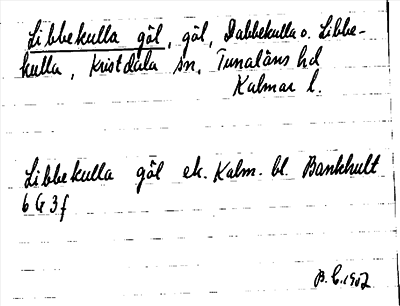 Libbekulla göl, göl, Dabbekulla o. Libbe-
kulla, Kristdala sn, Tunaläns hd
Kalmar l.
Libbekulla göl ek. Kalm. bl. Bankhult
6 G 3 f
B. E. 1957